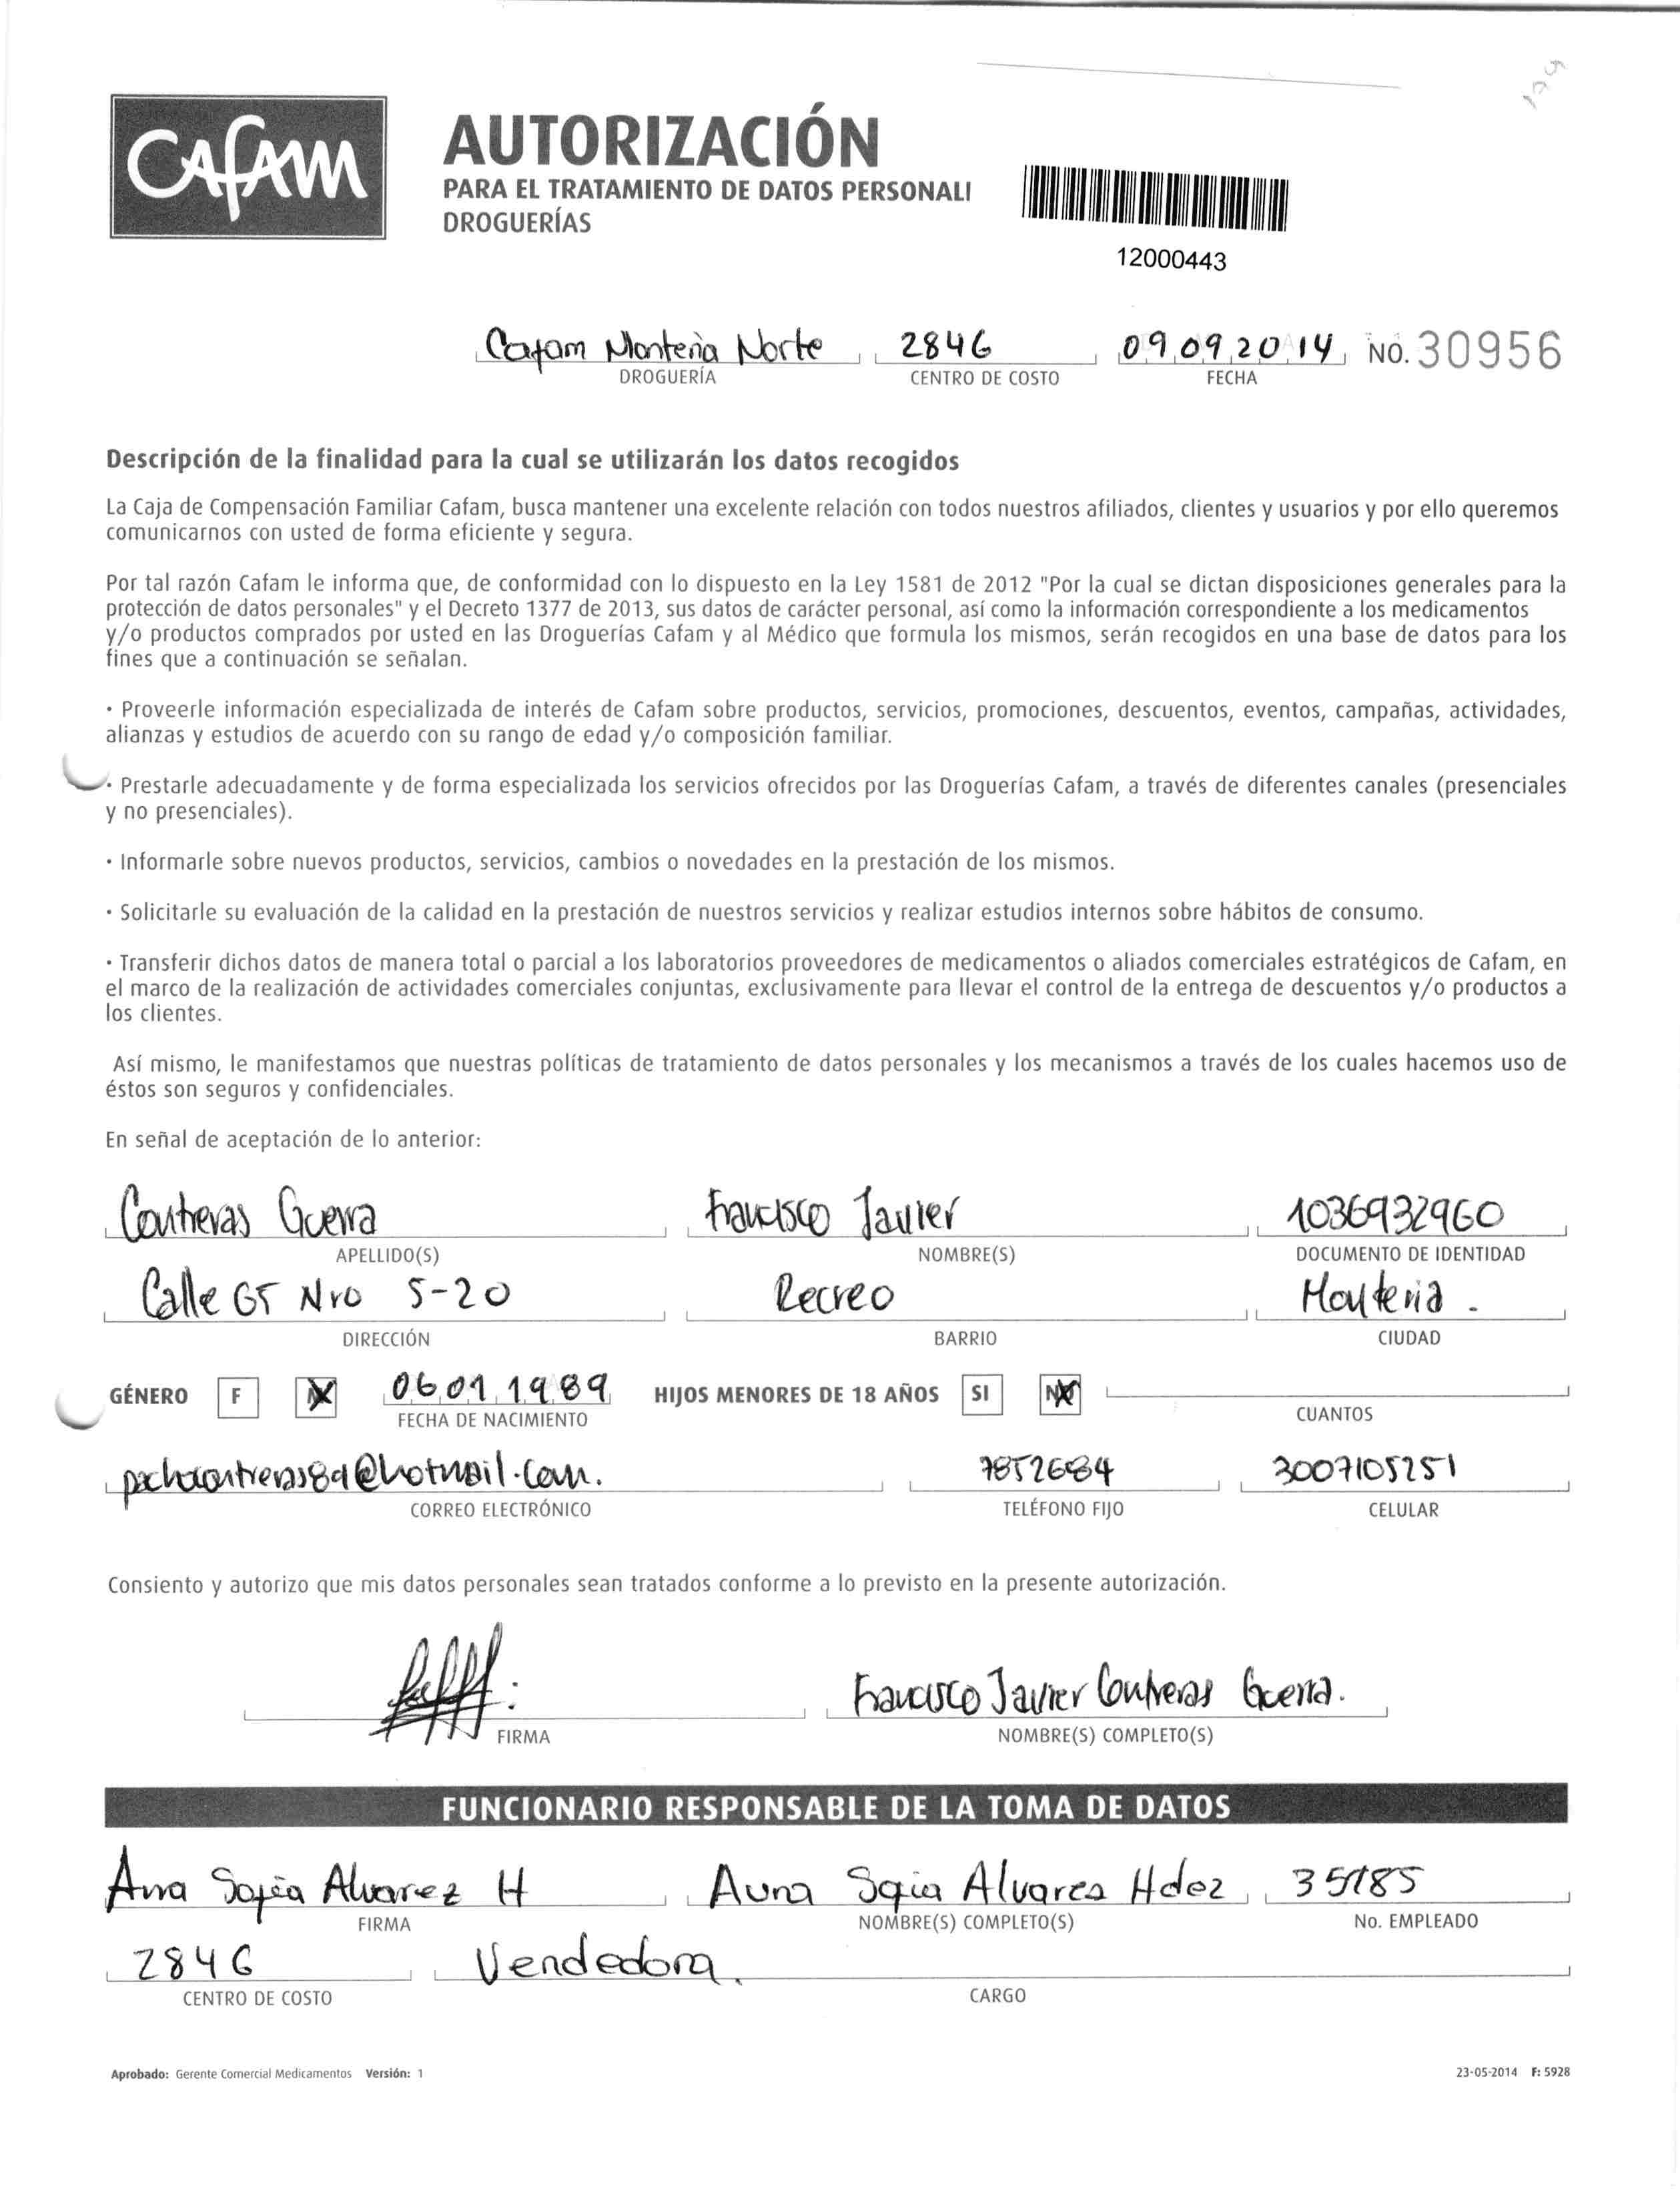 Cafam
AUTORIZACIÓN
PARA EL TRATAMIENTO DE DATOS PERSONALI
DROGUERÍAS
12000443
Cafam Monteria Norte 2846 09 09 2014 NO. 30956
DROGUERÍA CENTRO DE COSTO FECHA
Descripción de la finalidad para la cual se utilizarán los datos recogidos
La Caja de Compensación Familiar Cafam, busca mantener una excelente relación con todos nuestros afiliados, clientes y usuarios y por ello queremos
comunicarnos con usted de forma eficiente y segura.
Por tal razón Cafam le informa que, de conformidad con lo dispuesto en la Ley 1581 de 2012 "Por la cual se dictan disposiciones generales para la
protección de datos personales" y el Decreto 1377 de 2013, sus datos de carácter personal, así como la información correspondiente a los medicamentos
y/o productos comprados por usted en las Droguerías Cafam y al Médico que formula los mismos, serán recogidos en una base de datos para los
fines que a continuación se señalan.
· Proveerle información especializada de interés de Cafam sobre productos, servicios, promociones, descuentos, eventos, campañas, actividades,
alianzas y estudios de acuerdo con su rango de edad y/o composición familiar.
· Prestarle adecuadamente y de forma especializada los servicios ofrecidos por las Droguerías Cafam, a través de diferentes canales (presenciales
y no presenciales).
· Informarle sobre nuevos productos, servicios, cambios o novedades en la prestación de los mismos.
· Solicitarle su evaluación de la calidad en la prestación de nuestros servicios y realizar estudios internos sobre hábitos de consumo.
· Transferir dichos datos de manera total o parcial a los laboratorios proveedores de medicamentos o aliados comerciales estratégicos de Cafam, en
el marco de la realización de actividades comerciales conjuntas, exclusivamente para llevar el control de la entrega de descuentos y/o productos a
los clientes.
Así mismo, le manifestamos que nuestras políticas de tratamiento de datos personales y los mecanismos a través de los cuales hacemos uso de
éstos son seguros y confidenciales.
En señal de aceptación de lo anterior:
Contreras Guerra Francisco Javier 1036932960
APELLIDO(S) NOMBRE(S) DOCUMENTO DE IDENTIDAD
Calle 65 Nro 5-20 Recreo Monteria.
DIRECCIÓN BARRIO CIUDAD
GÉNERO F M 06 01 1989 HIJOS MENORES DE 18 AÑOS SI NO
FECHA DE NACIMIENTO CUANTOS
pachocontreras89@hotmail.com. 7852684 3007105251
CORREO ELECTRÓNICO TELÉFONO FIJO CELULAR
Consiento y autorizo que mis datos personales sean tratados conforme a lo previsto en la presente autorización.
Francisco Javier Contreras Guerra.
FIRMA NOMBRE(S) COMPLETO(S)
FUNCIONARIO RESPONSABLE DE LA TOMA DE DATOS
Ana Sofia Alvarez H Aura Sofia Alvarez Hdez 35785
FIRMA NOMBRE(S) COMPLETO(S) No. EMPLEADO
2846 Vendedora.
CENTRO DE COSTO CARGO
Aprobado: Gerente Comercial Medicamentos Versión: 1 23-05-2014 F: 5928